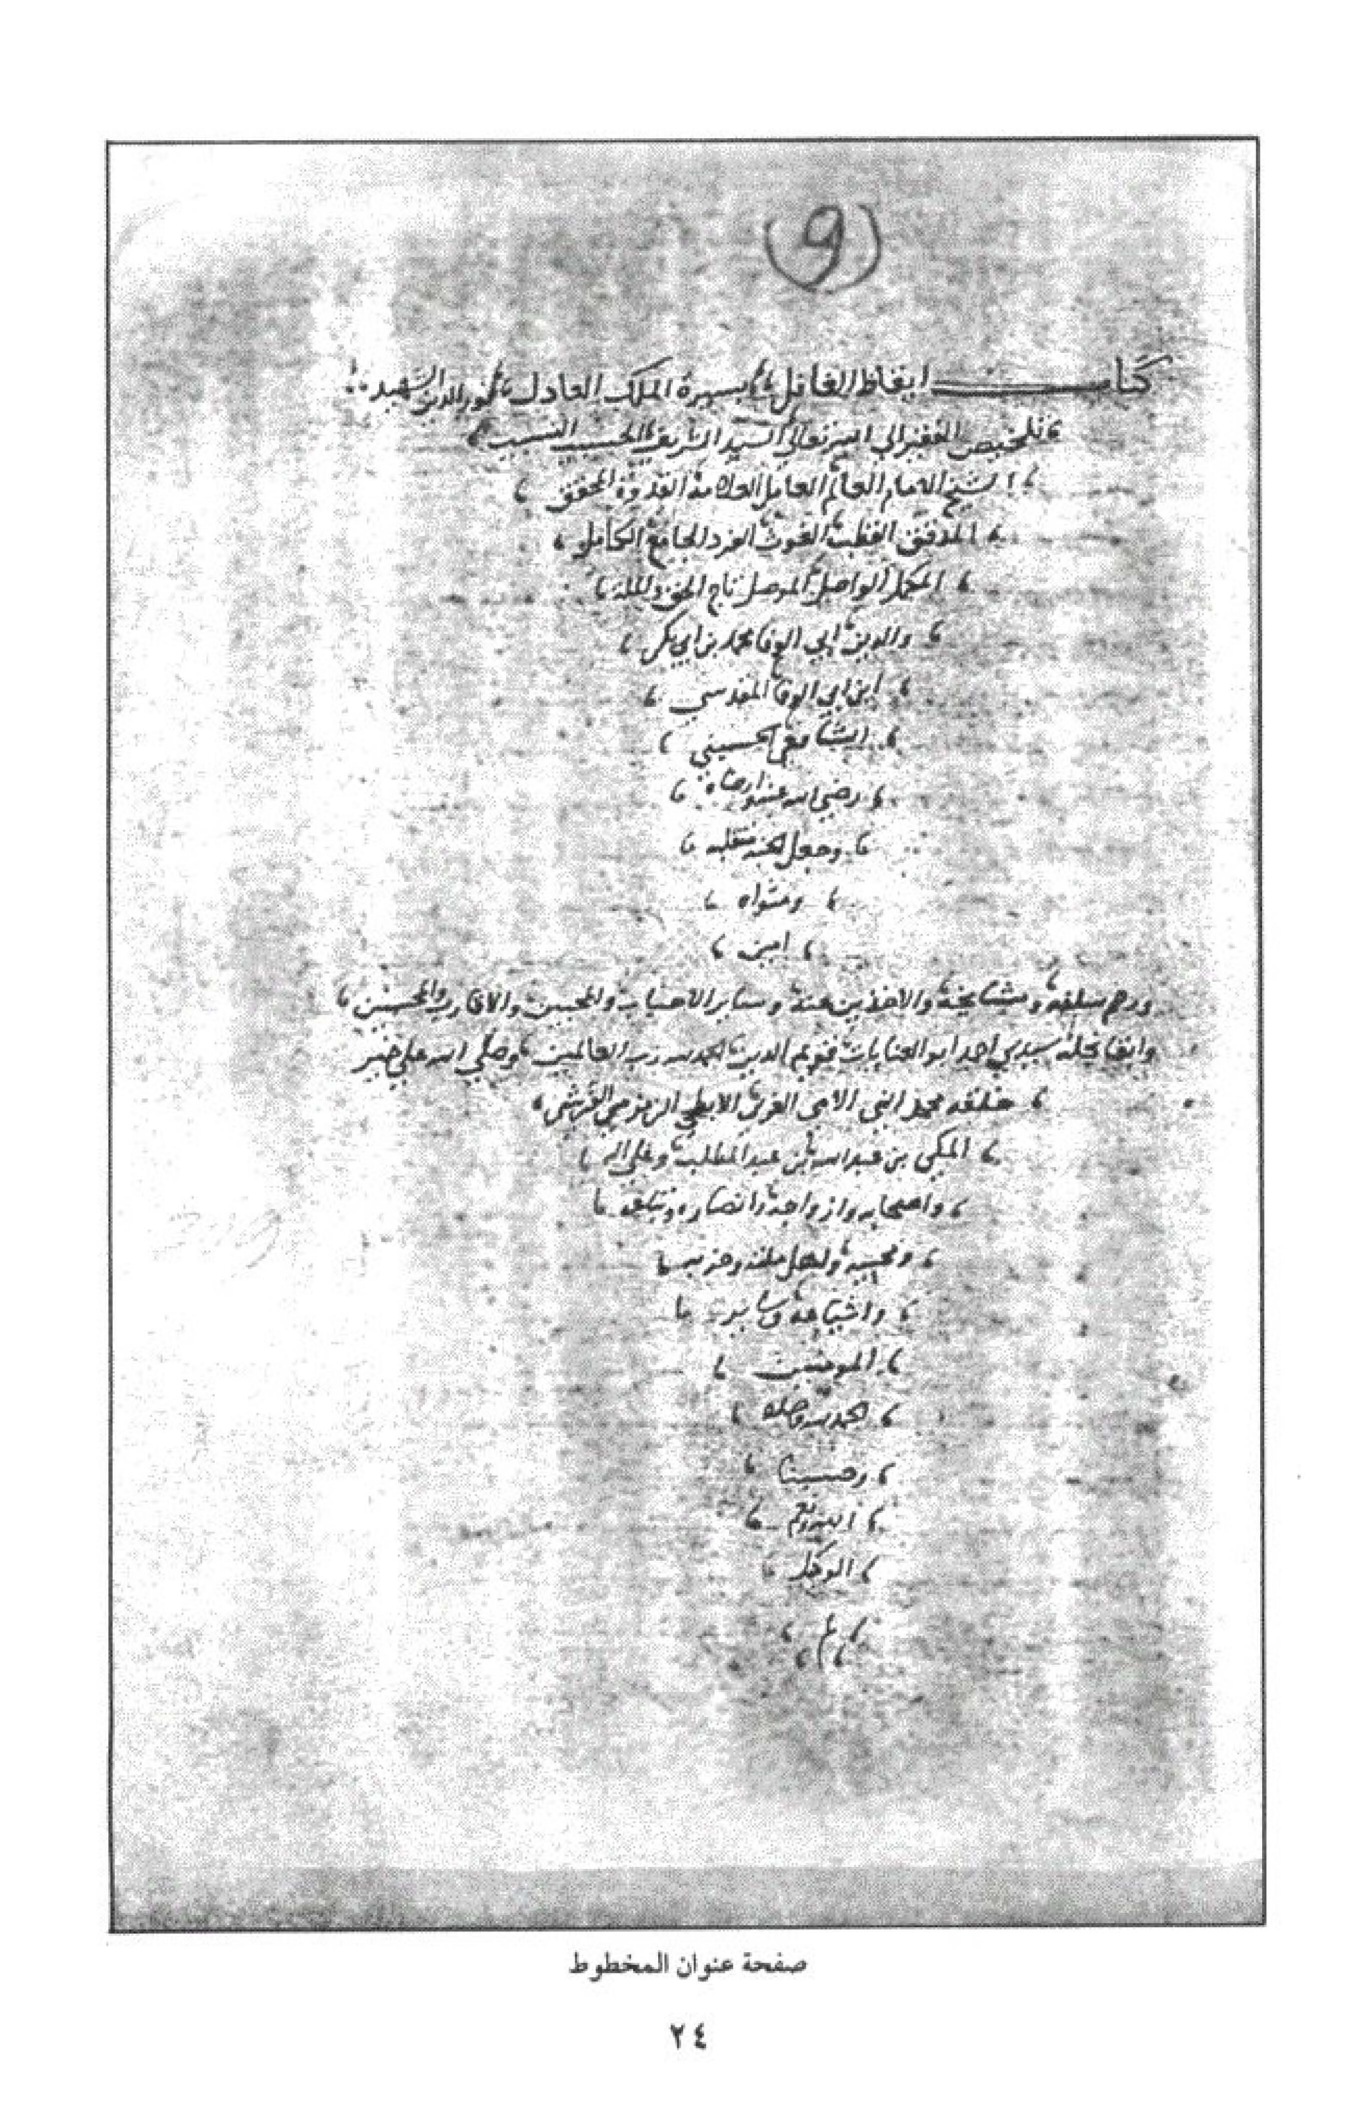 (9)
كتاب ايقاظ الغافل بسيرة الملك العادل نور الدين الشهيد
تلخيص الفقير الي الله تعالي السيد الشريف الحسيب النسيب
الشيخ الامام العالم العامل العلامة القدوة المحقق
المدقق القطب الغوث الفرد الجامع الكامل
المكمل الواصل الموصل تاج الحق والملة
والدين ابي الوفا محمد بن ابي بكر
ابن ابي الوفا المقدسي
الشافعي الحسيني
رضي الله عنه وارضاه
وجعل الجنة منقلبه
ومثواه
امين
ورحم سلفه ومشايخه والاخذين عنه وساير الاحباب والمحبين والاقارب والمحسنين
وابقا نجله سيدي احمد ابو العنايات الدين الحمد لله رب العالمين وصلي الله علي خير
خلقه محمد النبي الامي العربي الابطحي الزمزمي القرشي
المكي بن عبد الله بن عبد المطلب وعلي اله
واصحابه وازواجه وانصاره
ومحبيه واهل ملته وحزبه
واشياعه وساير
المومنين
الحمد لله وحده
وحسبنا
الله ونعم
الوكيل
م
صفحة عنوان المخطوط
٢٤